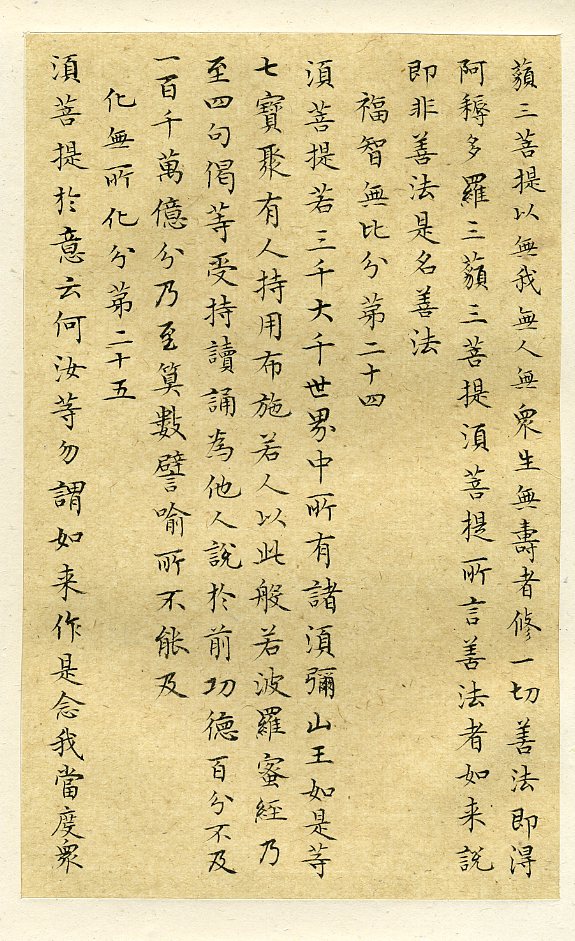 藐三菩提以無我無人無衆生無壽者修一切善法即得
阿耨多羅三藐三菩提須菩提所言善法者如来說
即非善法是名善法
福智無比分第二十四
須菩提若三千大千世界中所有諸須彌山王如是等
七寶聚有人持用布施若人以此般若波羅蜜經乃
至四句偈等受持讀誦為他人說於前功德百分不及
一百千萬億分乃至算數譬喻所不能及
化無所化分第二十五
須菩提於意云何汝等勿謂如来作是念我當度衆